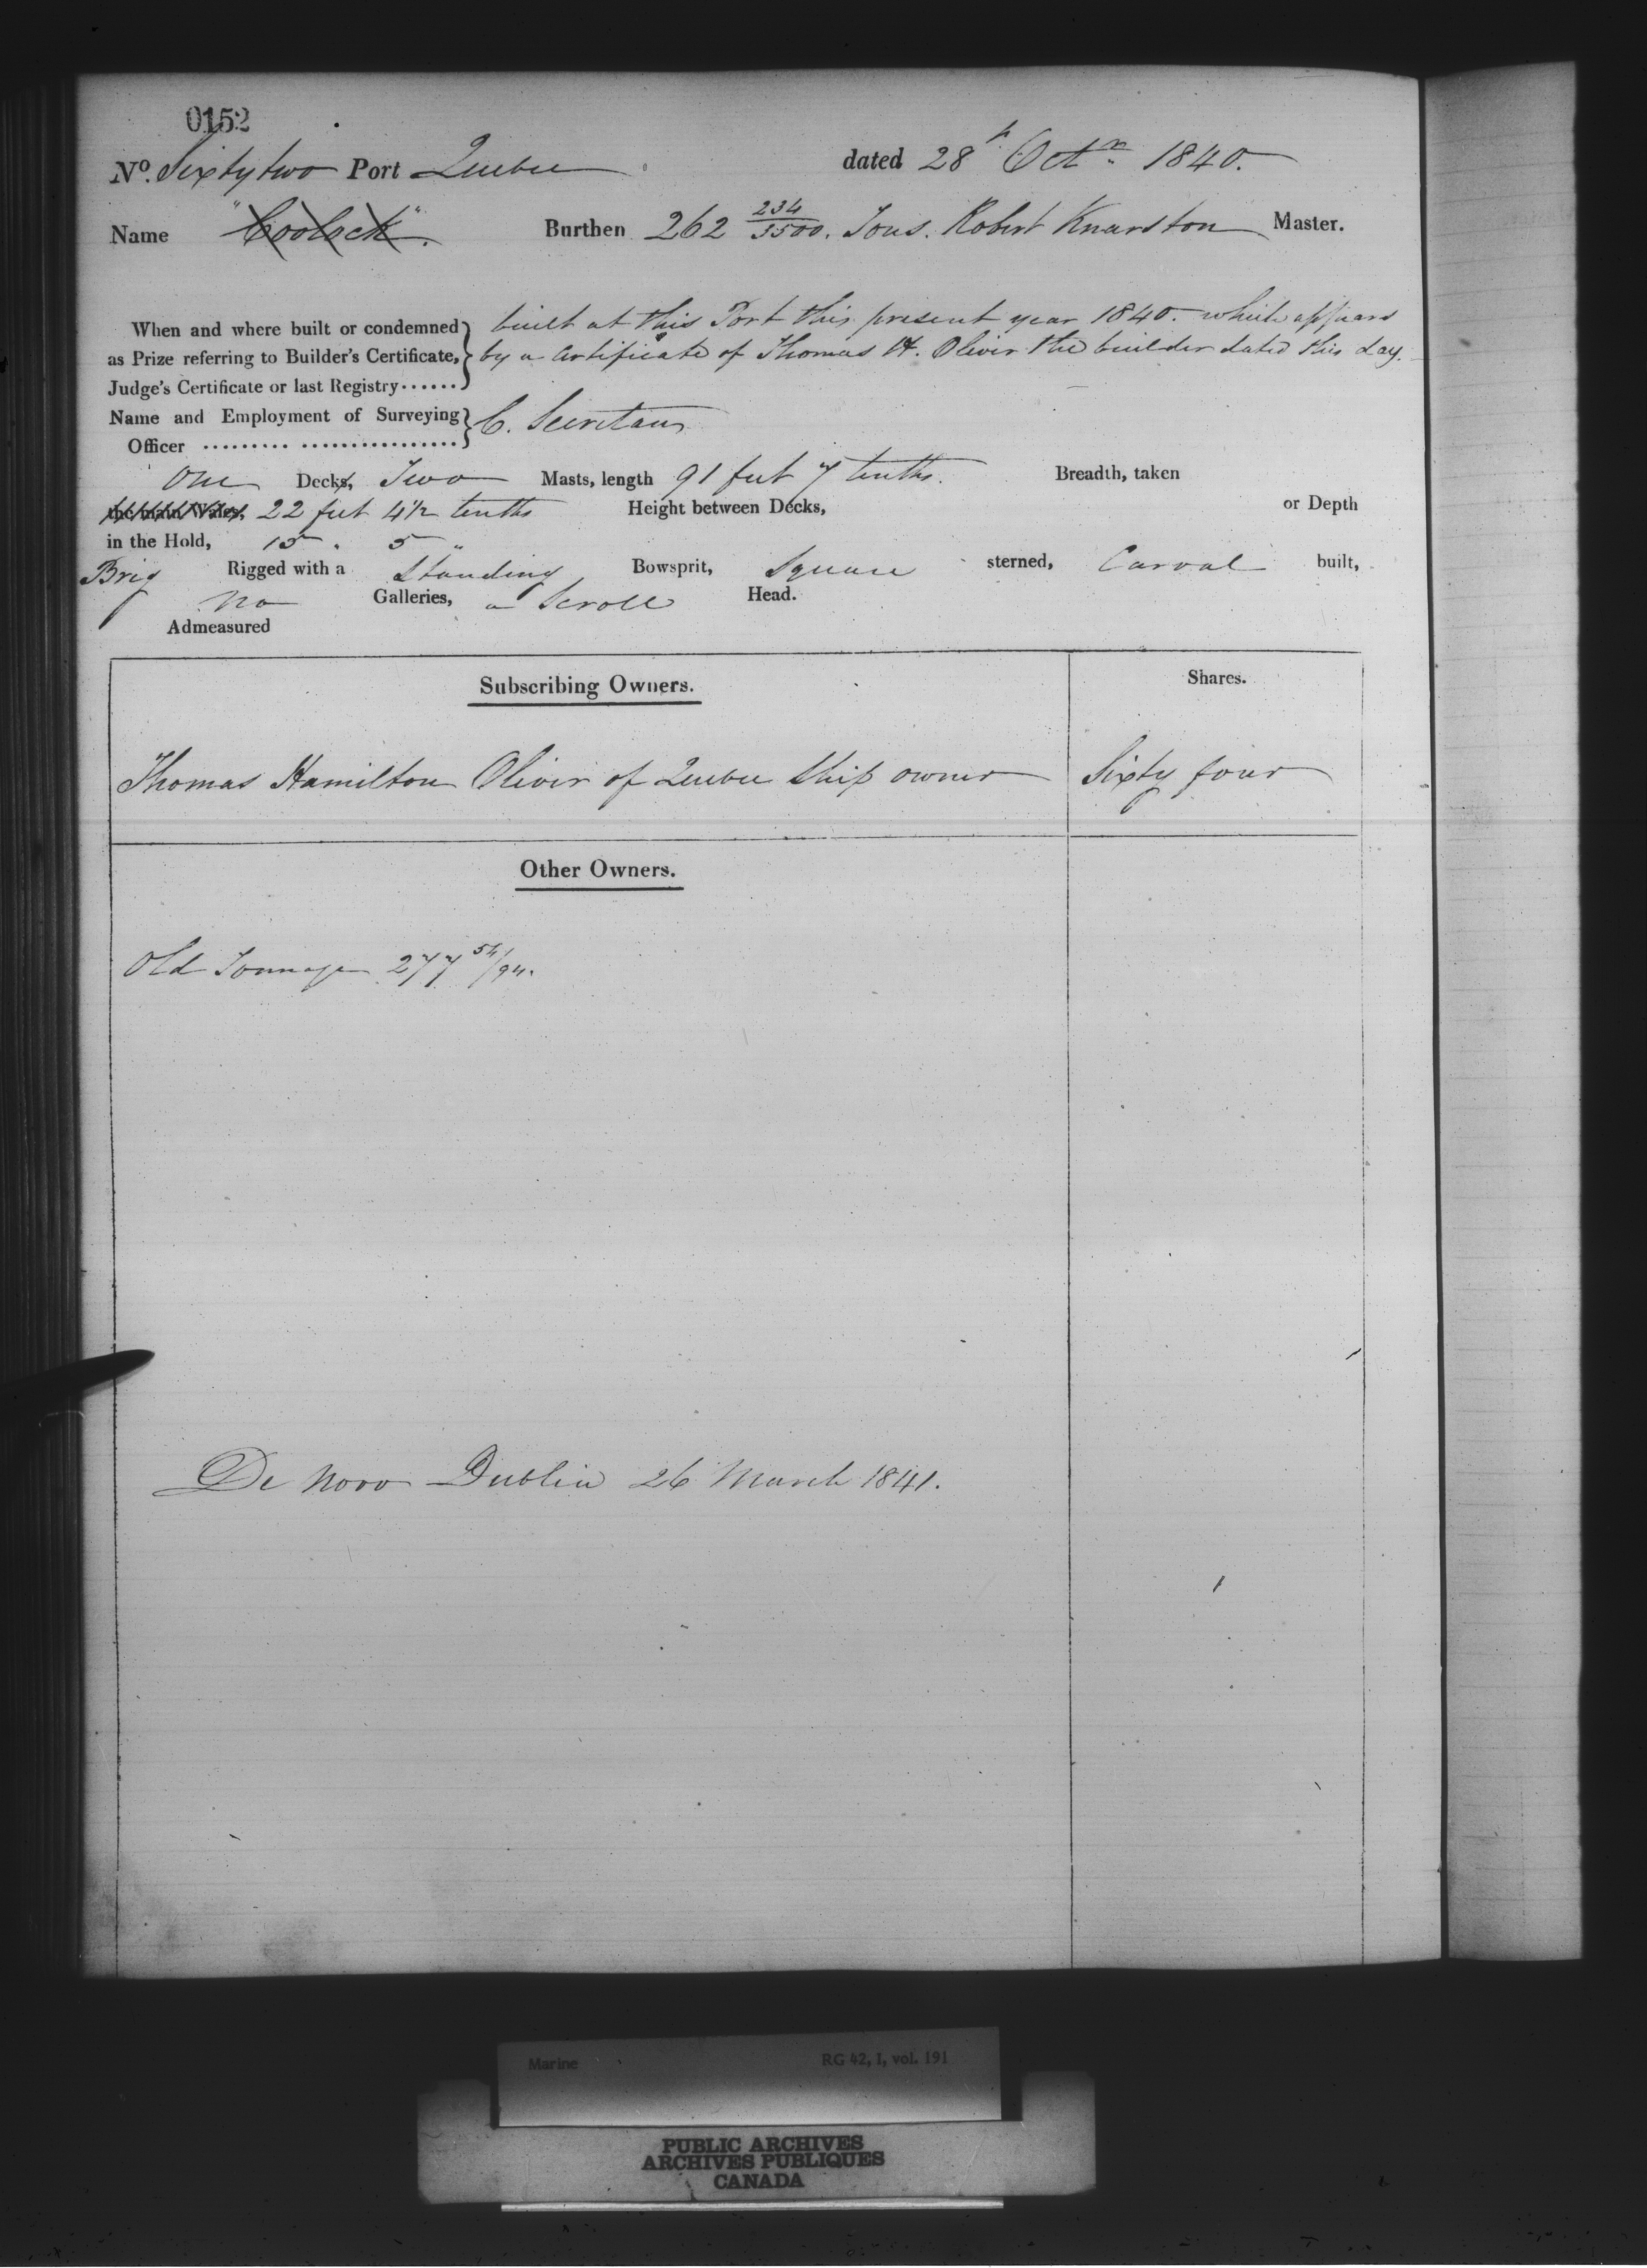 0152
No. Sixty two Port Quebec dated 28th Octr. 1840.
Name "Coolock". Burthen 262 234/3500. Tons. Robert Knarston Master.
When and where built or condemned built at this Port this present year 1840. which appears
as Prize referring to Builder's Certificate, by a Certificate of Thomas H. Oliver the builder dated this day.
Judge's Certificate or last Registry......
Name and Employment of Surveying C. Secretan
Officer ......... ................
One Decks, Two Masts, length 91 feet 7 tenths. Breadth, taken
the main Wales, 22 feet 4 1/2 tenths Height between Decks, or Depth
in the Hold, 15 . 5 "
Brig Rigged with a Standing Bowsprit, Square sterned, Carval built,
no Galleries, a Scroll Head.
Admeasured
Subscribing Owners. Shares.
Thomas Hamilton Oliver of Quebec Ship owner Sixty four
Other Owners.
Old Tonnage 277 54/94.
De Novo Dublin 26 March 1841.
Marine RG 42, I, vol. 191
PUBLIC ARCHIVES
ARCHIVES PUBLIQUES
CANADA